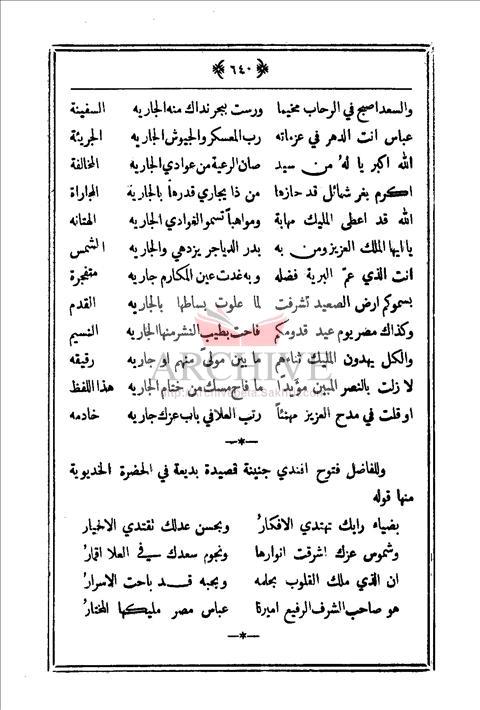 ﴿ ٦٤٠ ﴾
والسعد اصبح في الرحاب مخيما ورست ببحر نداك منه الجاريه السفينة
عباس انت الدهر في عزماته رب المعسكر والجيوش الجاريه الجريئة
الله اكبر يا له من سيد صان الرعية من عوادي الجاريه المخالفة
اكرم بغر شمائل قد حازها من ذا يجاري قدرها بالجارية المجاراة
الله قد اعطى المليك مهابة ومواهباً تسمو الغوادي الجاريه الهتانه
يا ايها الملك العزيز ومن به بدر الدياجر يزدهي والجاريه الشمس
انت الذي عمّ البرية فضله وبه غدت عين المكارم جاريه متفجرة
بسموكم ارض الصعيد تشرفت لما علوت بساطها بالجاريه القدم
وكذاك مصر يوم عيد قدومكم فاحت بطيب النشر منها الجاريه النسيم
والكل يهدون المليك ثناءهم ما بين مولىً منهم او جاريه رقيقه
لا زلت بالنصر المبين مؤيداً ما فاح مسك من ختام الجاريه هذا اللفظ
او قلت في مدح العزيز مهنئاً رتب العلا في باب عزك جاريه خادمه
ARCHIVE
http://Archivebeta.Sakhrit.com
وللفاضل فتوح افندي جنينة قصيدة بديعة في الحضرة الخديوية
منها قوله
بضياء رايك تهتدي الافكارُ وبحسن عدلك تقتدي الاخيار
وشموس عزك اشرقت انوارها ونجوم سعدك في العلا اقمارُ
ان الذي ملك القلوب بحلمه وبحبه قد باحت الاسرارُ
هو صاحب الشرف الرفيع اميرنا عباس مصر مليكها المختارُ